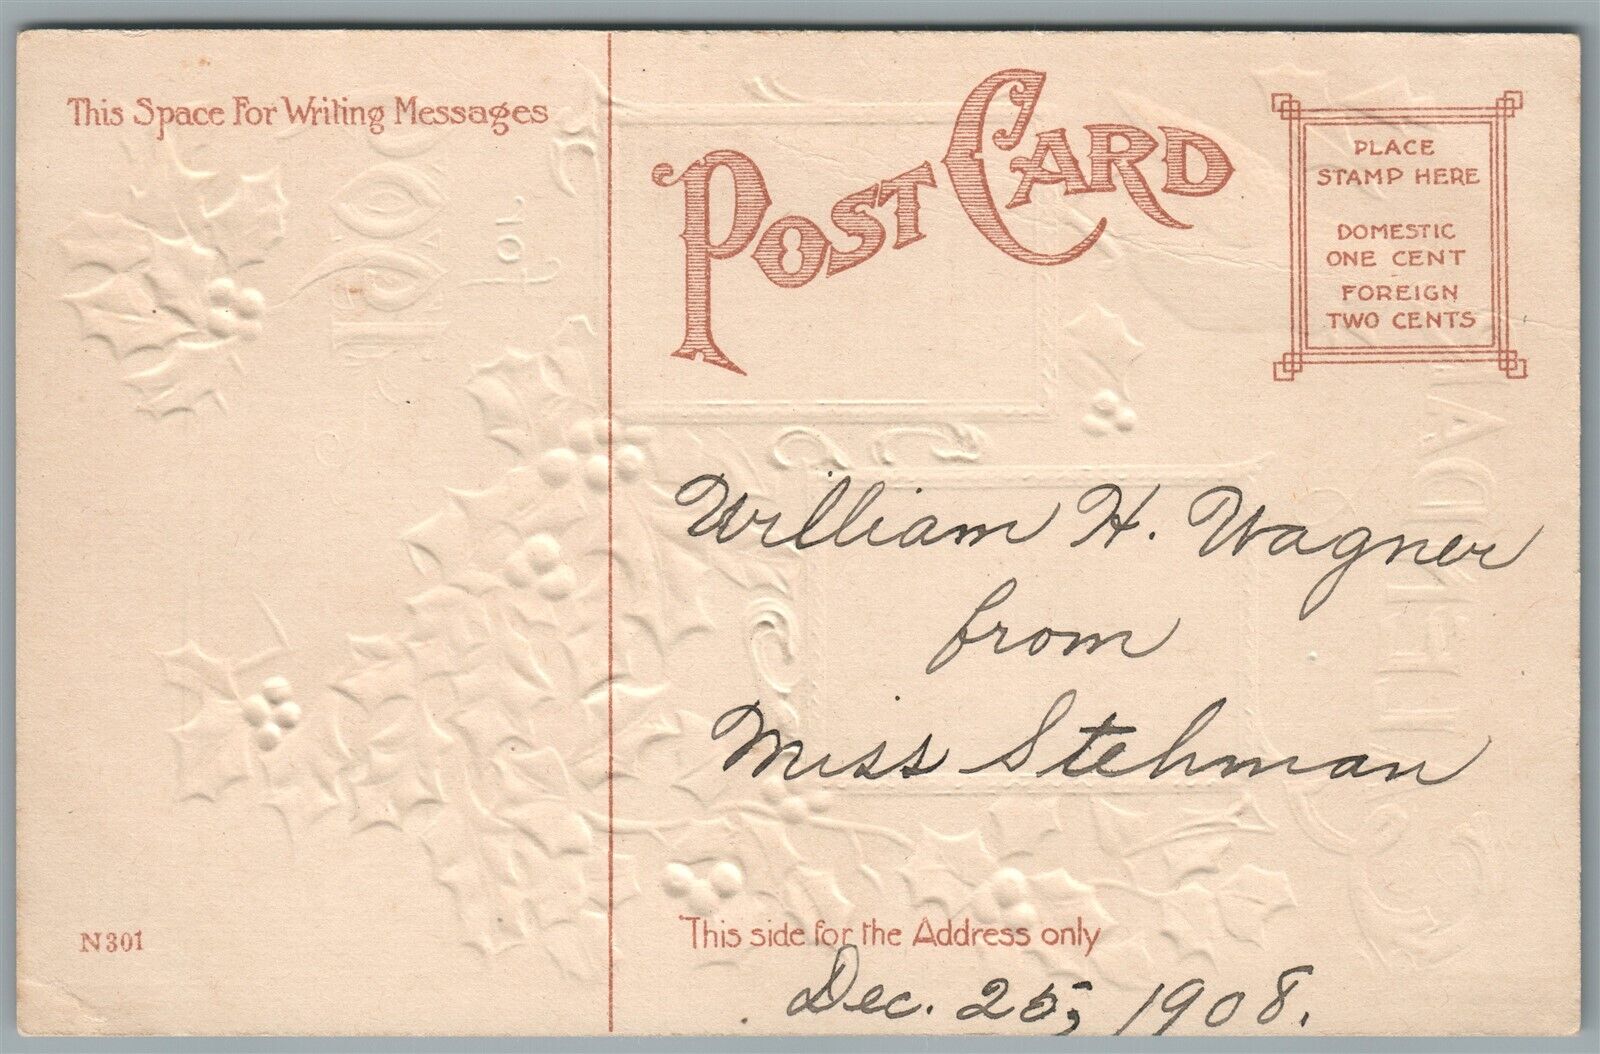 This Space For Writing Messages
POST CARD
PLACE
STAMP HERE
DOMESTIC
ONE CENT
FOREIGN
TWO CENTS
William H. Wagner
from
Miss Stehman
N301
This side for the Address only
Dec. 25, 1908.